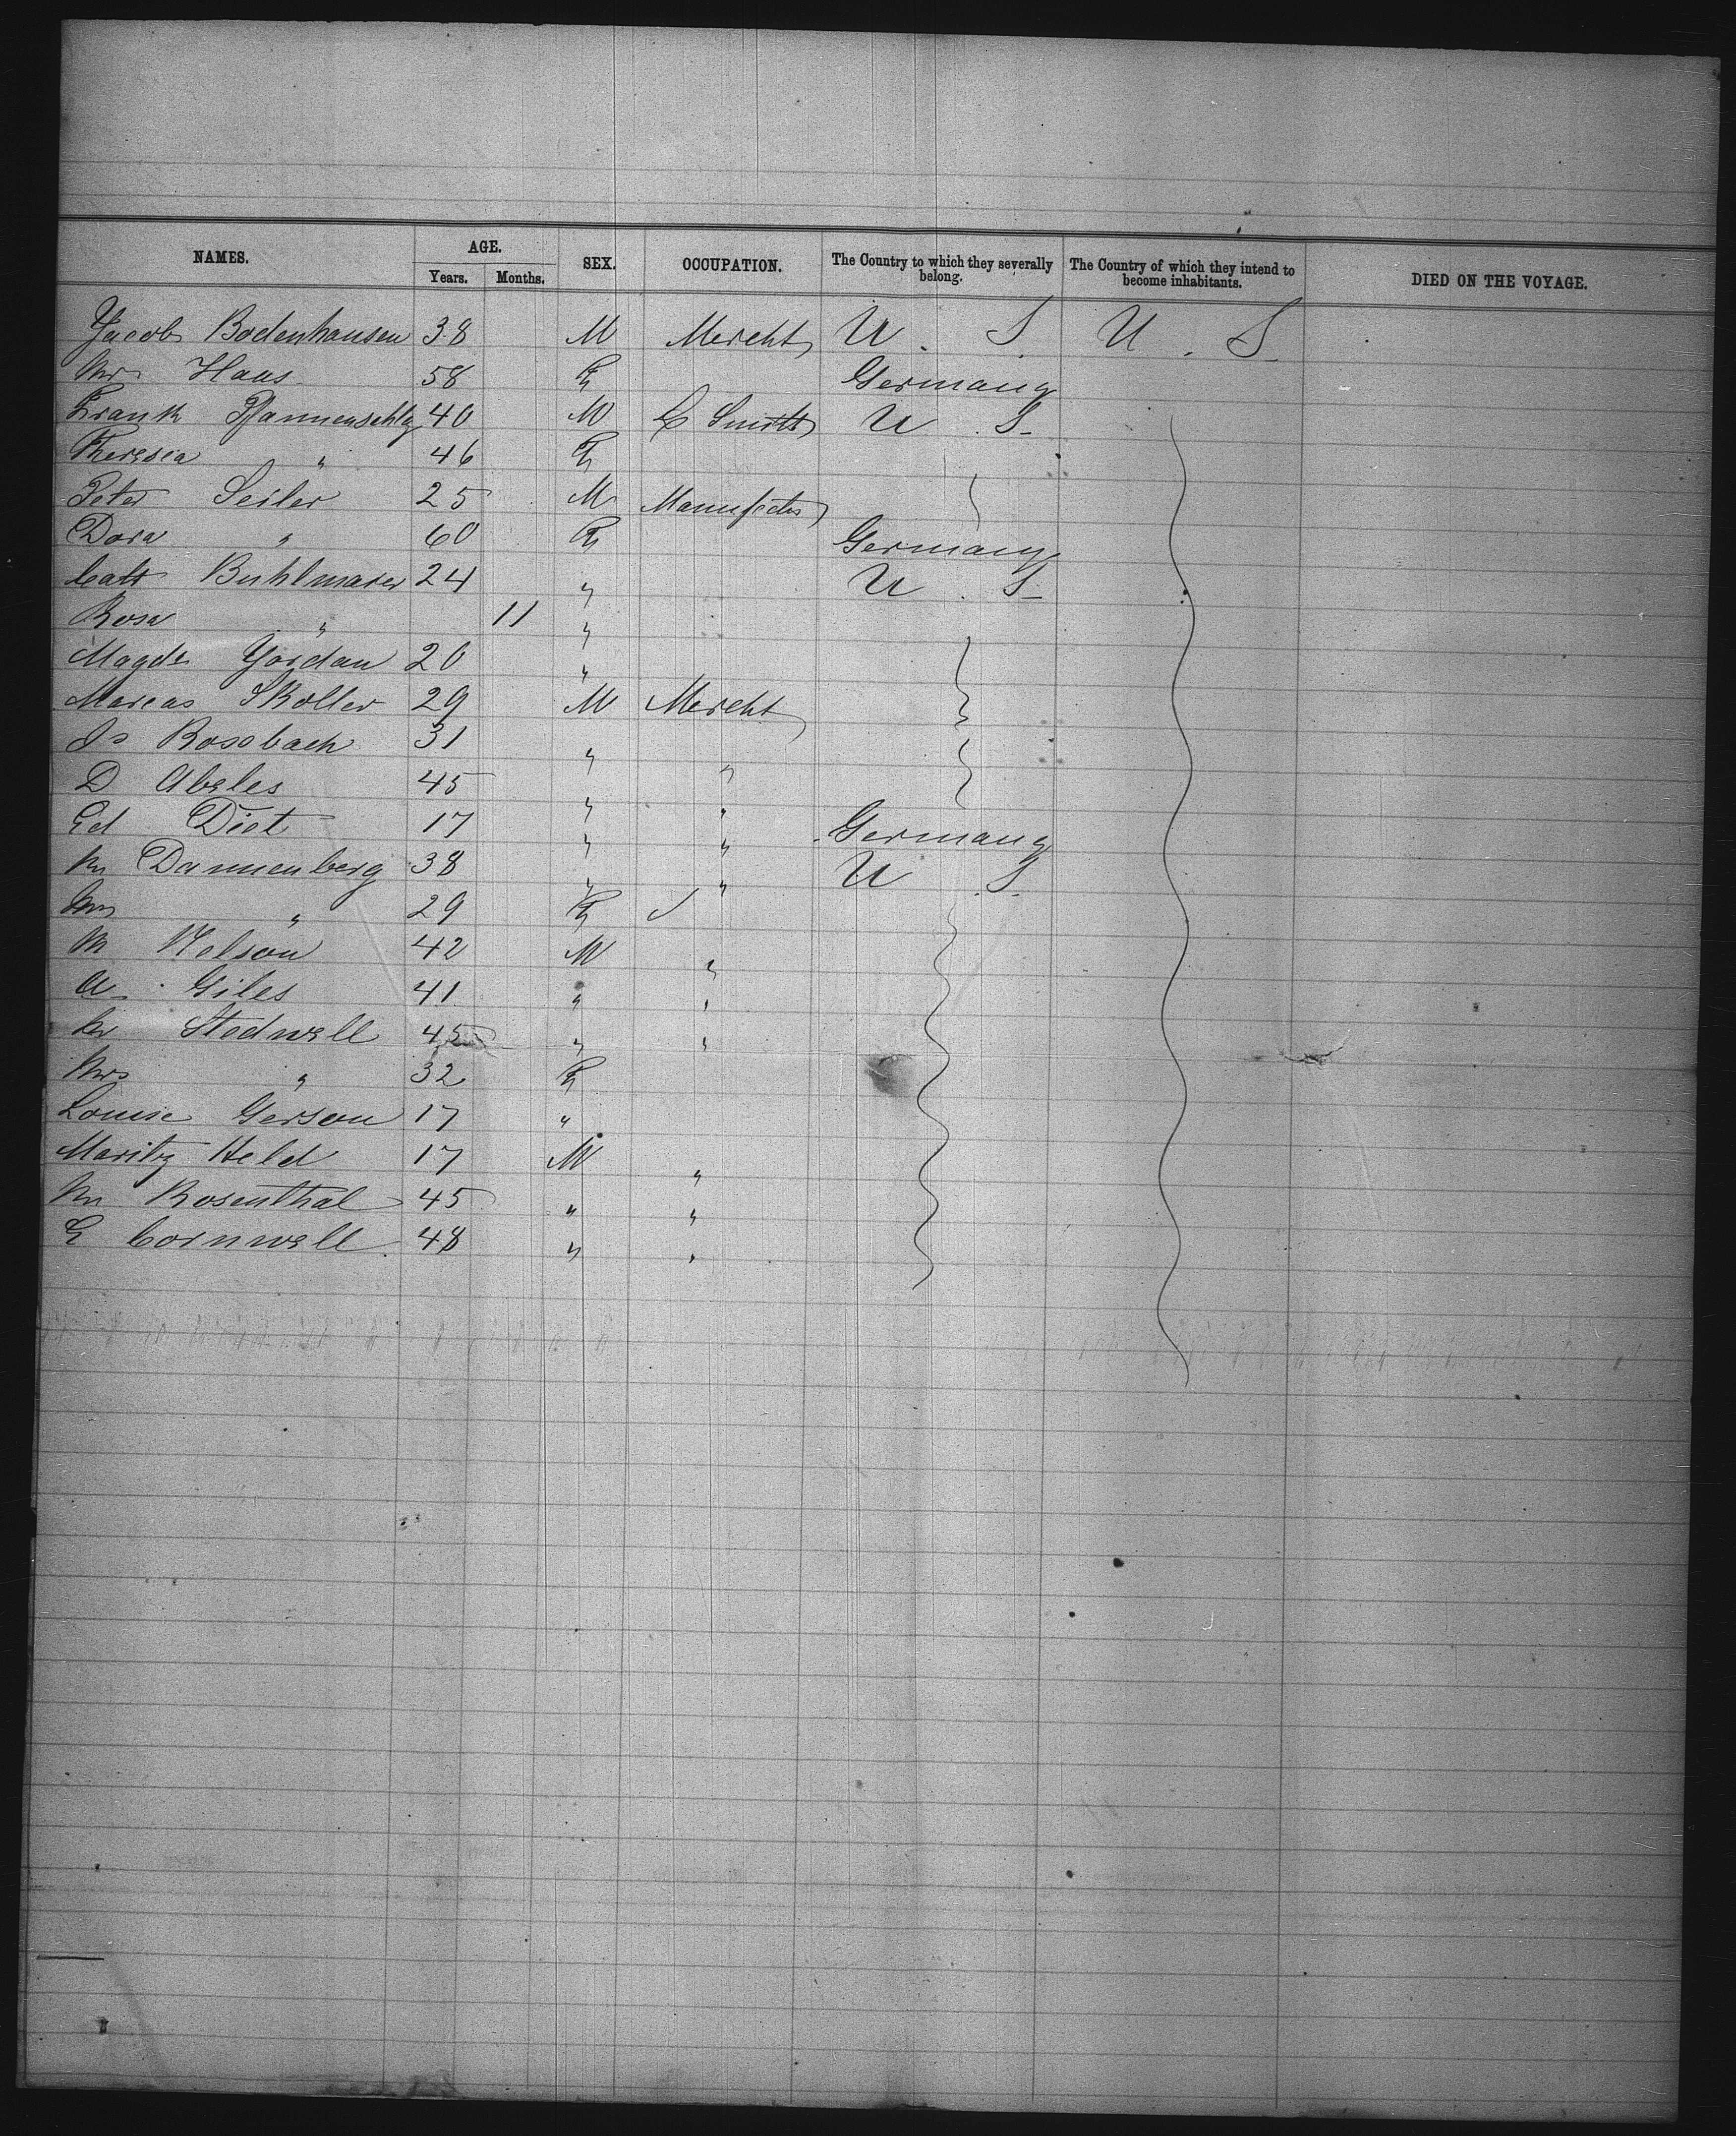 NAMES. AGE. SEX. OCCUPATION. The Country to which they severally belong. The Country of which they intend to become inhabitants. DIED ON THE VOYAGE.
Years. Months.
Jacob Bodenhausen 38 M Mercht U. S. U. S.
Mrs Haas 58 F Germany
Frank Pfannenschlg 40 M C Smith U. S.
Theresia " 46 F
Peter Seiler 25 M Manufctr
Dora " 60 F Germany
Cath Buhlmaier 24 " U. S.
Rosa " 11 "
Magd Jordan 20 "
Marcus Skoller 29 M Mercht
Is Rossbach 31 " "
D Abeles 45 " "
Ed Diet 17 " " Germany
M Dannenberg 38 " " U. S.
Mrs " 29 F
M Nelson 42 M "
A. Giles 41 " "
Stedwell 45 " "
Mrs " 32 F
Louise Gerson 17 "
Moritz Held 17 M "
M Rosenthal 45 " "
E Cornwell 48 " "